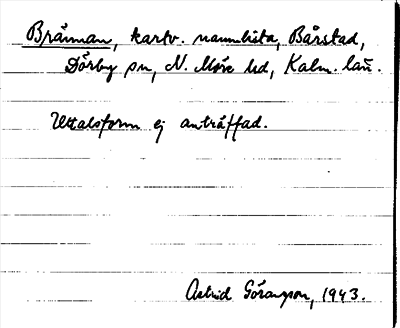 Brånman, kartv. namnlista, Bårstad,
Dörby sn, N. Möre hd, Kalm. län.
Uttalsform ej anträffad.
Astrid Göransson, 1943.